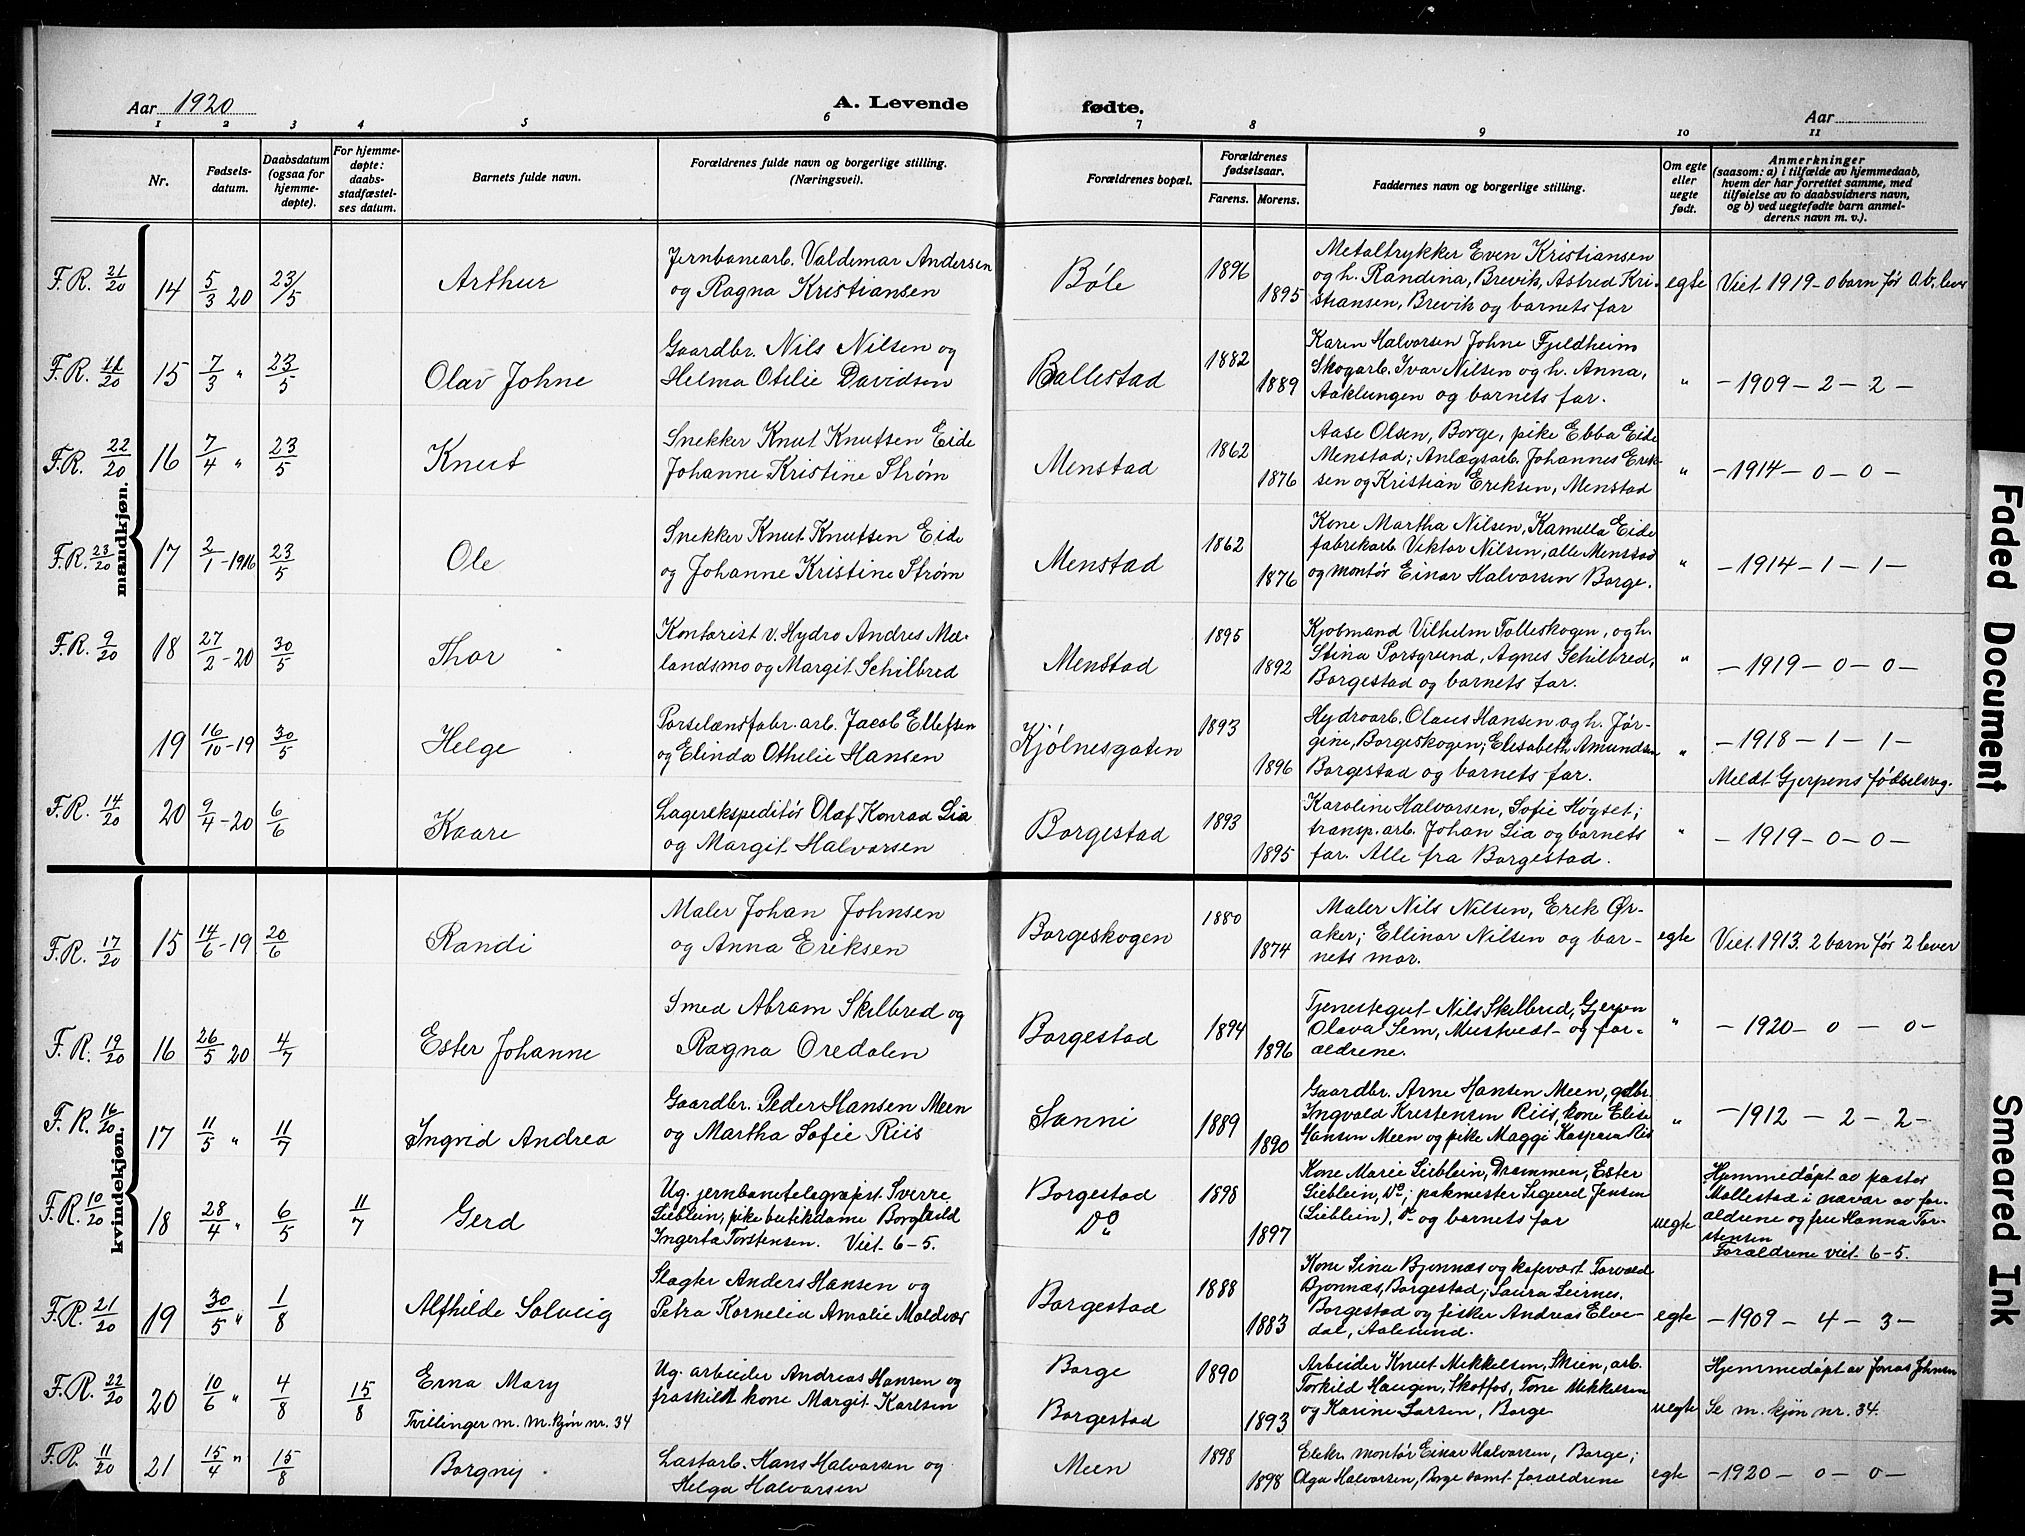 Aar 1920
A. Levende
fødte.
Aar
1 2 3 4 5 6 7 8 9 10 11
Nr.
Fødsels-
datum.
Daabsdatum
(ogsaa for
hjemme-
døpte).
For hjemme-
døpte:
daabs-
stadfæstel-
ses datum.
Barnets fulde navn.
Forældrenes fulde navn og borgerlige stilling.
(Næringsvei).
Forældrenes bopæl.
Forældrenes
fødselsaar.
Farens. Morens.
Faddernes navn og borgerlige stilling.
Om egte
eller
uegte
født.
Anmerkninger
(saasom: a) i tilfælde av hjemmedaab,
hvem der har forrettet samme, med
tilføielse av to daabsvidners navn,
og b) ved uegtefødte barn anmel-
derens navn m. v.).
mandkjøn.
F.R. 21/20 14 5/3 20 23/5 Arthur
Jernbanearb. Valdemar Andersen
og Ragna Kristiansen
Bøle 1896 1895
Metaltrykker Even Kristiansen
og h. Randina, Brevik, Astrid Kri-
stiansen, Brevik og barnets far
egte Viet 1919 - 0 barn før 0 av. lever
F.R. 11/20 15 7/3 " 23/5 Olav Johne
Gaardbr. Nils Nilsen og
Helma Otelie Davidsen
Ballestad 1882 1889
Karen Halvorsen Johne Fjeldheim
Skogarb. Ivar Nilsen og h. Anna,
Aaklungen og barnets far.
" - 1909 - 2 - 2 -
F.R. 22/20 16 7/4 " 23/5 Knut
Snekker Knut Knutsen Eide
Johanne Kristine Strøm
Menstad 1862 1876
Aase Olsen, Borge, pike Ebba Eide
Menstad; Anlægsarb. Johannes Erik-
sen og Kristian Eriksen, Menstad
" - 1914 - 0 - 0 -
F.R. 23/20 17 2/1 - 1916 23/5 Ole
Snekker Knut Knutsen Eide
og Johanne Kristine Strøm
Menstad 1862 1876
Kone Martha Nilsen, Kamilla Eide
fabrikarb. Viktor Nilsen, alle Menstad
og montør Einar Halvorsen Borge.
" - 1914 - 1 - 1 -
F.R. 9/20 18 27/2 - 20 30/5 Thor
Kontorist v. Hydro Andres Mæ-
landsmo og Margit Schilbred
Menstad 1895 1892
Kjøbmand Vilhelm Tolleskogen, og h.
Stina Porsgrund, Agnes Schilbred,
Borgestad og barnets far.
" - 1919 - 0 - 0 -
19 16/10 - 19 30/5 Helge
Porselænsfabr. arb. Jacob Ellefsen
og Elinda Othelie Hansen
Kjølnesgaten 1893 1896
Hydroarb. Olaus Hansen og h. Jør-
gine, Borgeskogen; Elisabeth Amundsen
Borgestad og barnets far.
" - 1918 - 1 - 1 -
Meldt Gjerpens fødselsreg.
F.R. 14/20 20 9/4 - 20 6/6 Kaare
Lagerekspeditør Olaf Konrad Lia
og Margit Halvorsen
Borgestad 1893 1895
Karoline Halvorsen, Sofie Høgset;
transp. arb. Johan Lia og barnets
far. Alle fra Borgestad.
" - 1919 - 0 - 0 -
kvindekjøn.
F.R. 17/20 15 14/6 - 19 20/6 Randi
Maler Johan Johnsen
og Anna Eriksen
Borgeskogen 1880 1874
Maler Nils Nilsen, Erik Ør-
aker; Ellinor Nilsen og bar-
nets mor.
egte Viet 1913. 2 barn før 2 lever
F.R. 19/20 16 26/5 20 4/7 Ester Johanne
Smed Abram Skilbred og
Ragna Oredalen
Borgestad 1894 1896
Tjenestegut Nils Skilbred, Gjerpen
Olava Sem, Mustvedt - og for-
ældrene.
" - 1920 - 0 - 0 -
F.R. 16/20 17 11/5 " 11/7 Ingrid Andrea
Gaardbr. Peder Hansen Meen
og Martha Sofie Riis
Sanni 1889 1890
Gaardbr. Arne Hansen Meen, gdbr.
Ingvald Kristensen Riis, kone Elise
Hansen Meen og pike Maggi Kaspara Riis
" - 1912 - 2 - 2 -
F.R. 10/20 18 28/4 " 6/5 11/7 Gerd
Ug. jernbanetelegrapist Sverre
Lieblein, pike butikdame Borghild
Ingerta Torstensen. Viet 6-5.
Borgestad
Do 1898 1897
Kone Marie Lieblein, Drammen, Ester
Lieblein, Do; pakmester Sigurd Jensen
(Lieblein), Do og barnets far
uegte
Hjemmedøpt av pastor
Mollestad i nævær av for-
ældrene og fru Hanna Tor-
stensen
Forældrene viet 6-5.
F.R. 21/20 19 30/5 " 1/8 Alfhilde Solveig
Slagter Anders Hansen og
Petra Kornelia Amalie Moldvær
Borgestad 1888 1883
Kone Lina Bjønnæs og kafevært Torvald
Bjønnæs, Borgestad; Laura Leirnes,
Borgestad og fisker Andreas Elve-
dal, Aalesund.
egte - 1909 - 4 - 3 -
F.R. 22/20 20 10/6 " 4/8 15/8 Erna Mary
Tvillinger m. m. kjøn nr. 34
Ug. arbeider Andreas Hansen og
fraskildt kone Margit Karlsen
Borge
Borgestad 1890 1893
Arbeider Knut Mikkelsen, Skien, arb.
Torkild Haugen, Skotfos, Tone Mikkelsen
og Karine Larsen, Borge
uegte
Hjemmedøpt av Jonas Johnsen
Se m. kjøn nr. 34.
F.R. 11/20 21 15/4 " 15/8 Borgny
Lastarb. Hans Halvorsen og
Helga Halvorsen
Meen 1898 1898
Elektr. montør Einar Halvorsen, Borge;
Olga Halvorsen, Borge samt forældrene
egte - 1920 - 0 - 0 -
Faded Document
Smeared Ink